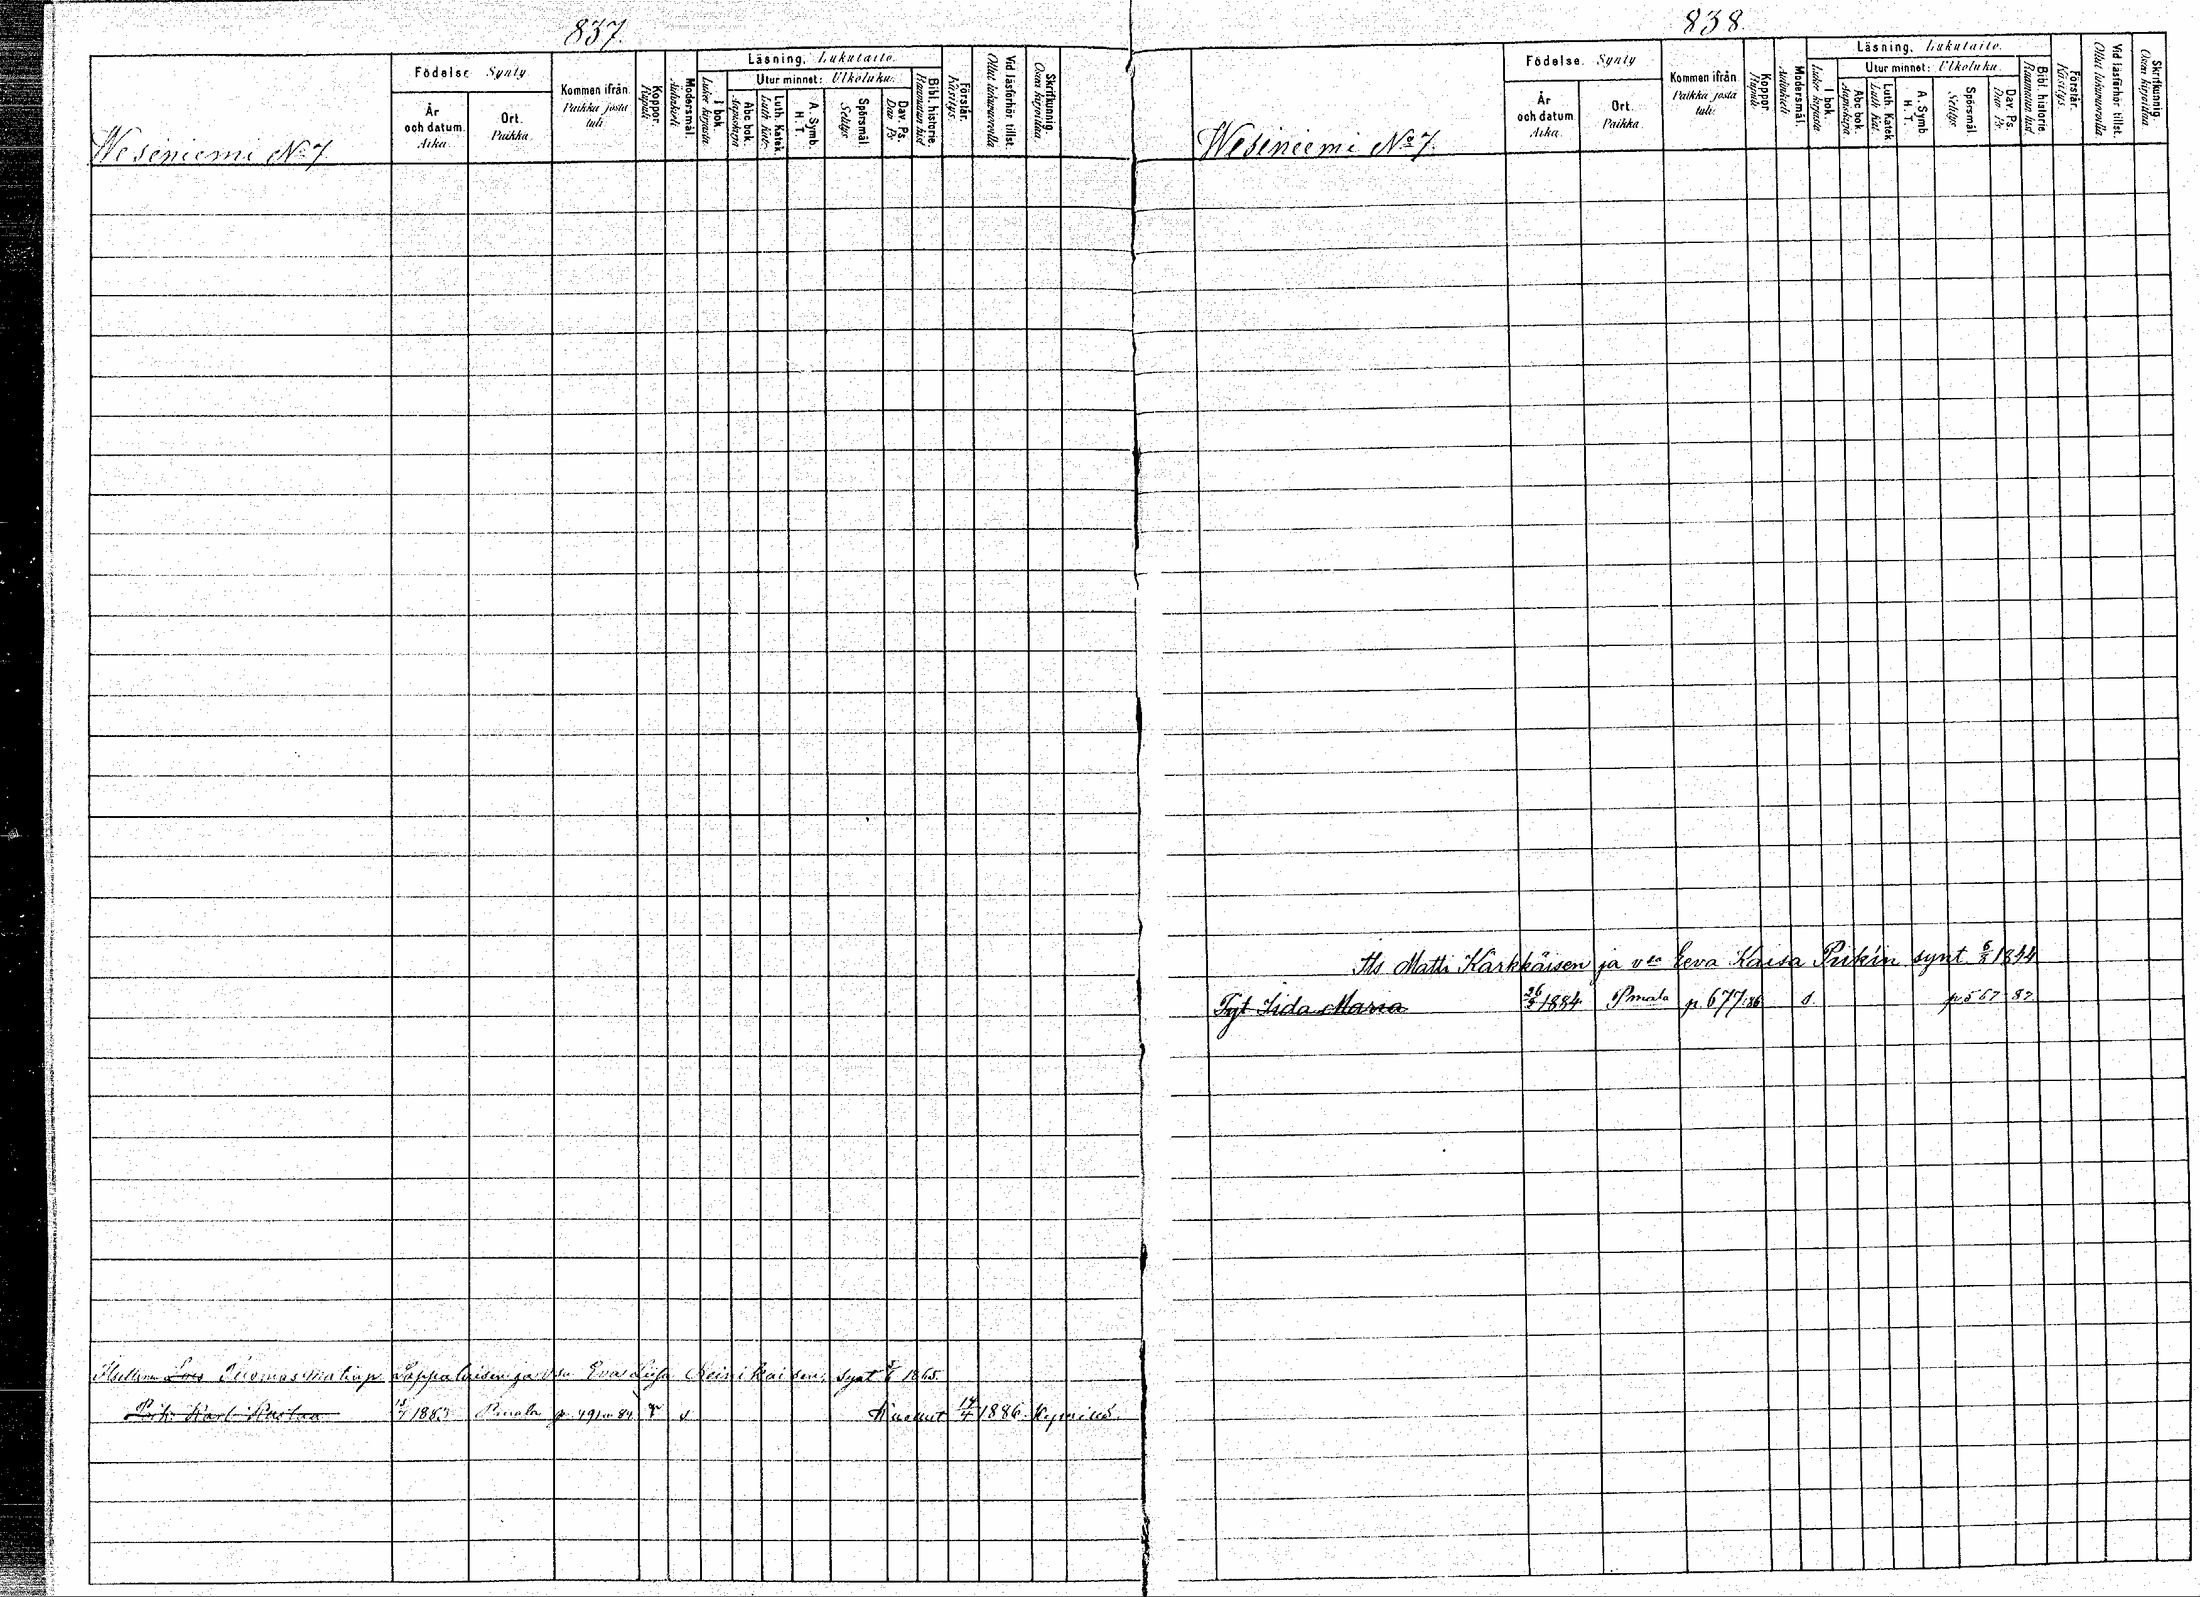 837.
Födelse Synty
Kommen ifrån. Paikka josta tuli.
Koppor. Rupuli
Modersmål. Äidinkieli
Läsning. Lukutaito.
I bok. Lukee kirjasta
Utur minnet: Ulkoluku.
Abc bok. Aapiskirja
Luth. Katek. Luth. Kat.
A. Symb. H. T.
Spörsmål. Selitys.
Dav. Ps. Dav. Ps.
Bibl. historie. Raamatun hist.
Förstår. Käsitys.
Vid läsförhör tillst. Ollut lukuvuorolla
Skrifkunnig. Osaa kirjoittaa.
År och datum. Aika.
Ort. Paikka.
Weseniemi No 7
Tuomas Matinp. Lappalaisen ja Eva Liisa Reinikaisen, synt 1865.
Karl Kustaa 1883 Pmala p. 491 84 s Kuollut 17/4 1886
838.
Födelse. Synty
Kommen ifrån. Paikka josta tuli.
Koppor. Rupuli
Modersmål. Äidinkieli
Läsning. Lukutaito.
I bok. Lukee kirjasta
Utur minnet: Ulkoluku.
Abc bok. Aapiskirja
Luth. Katek. Luth. Kat.
A. Symb. H. T.
Spörsmål. Selitys
Dav. Ps. Dav. Ps.
Bibl. historie. Raamatun hist.
Förstår. Käsitys.
Vid läsförhör tillst. Ollut lukuvuorolla
Skrifkunnig. Osaa kirjoittaa
År och datum Aika.
Ort. Paikka.
Weseniemi No 7.
Its Matti Kärkkäisen ja vaa Eeva Kaisa Piikin synt 6/8 1844
Tyt Iida Maria 26/3 1884 Pmala p. 677 86 s. p 567 87